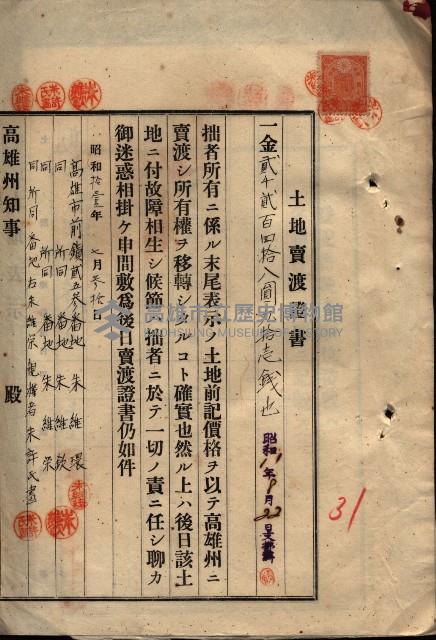 土地賣渡證書
一金貳千貳百四拾八圓 拾壱錢也
昭和11年9月22日
31
拙者所有ニ係ル末尾表示ノ土地前記價格ヲ以テ高雄州ニ
賣渡シ所有權ヲ移轉シタルコト確實也然ル上ハ後日該土
地ニ付故障相生シ候節ハ拙者ニ於テ一切ノ責ニ任シ聊カ
御迷惑相掛ケ申間敷為後日賣渡證書仍如件
昭和拾壹年七月 日
高雄市前鎮貳五參番地 朱維環
同 所同 番地 朱維欽
同 所同 番地 朱維榮
同 所同番地右朱維榮親權者朱許氏
高雄州知事 殿
高雄市立歷史博物館
KAOHSIUNG MUSEUM OF HISTORY